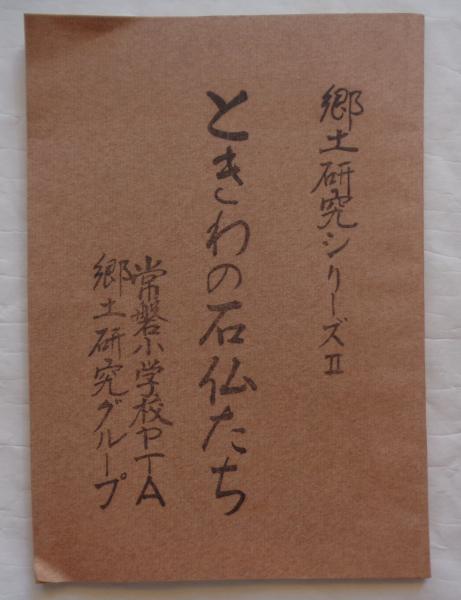 郷土研究シリーズⅡ
ときわの石仏たち
常磐小学校PTA
郷土研究グループ